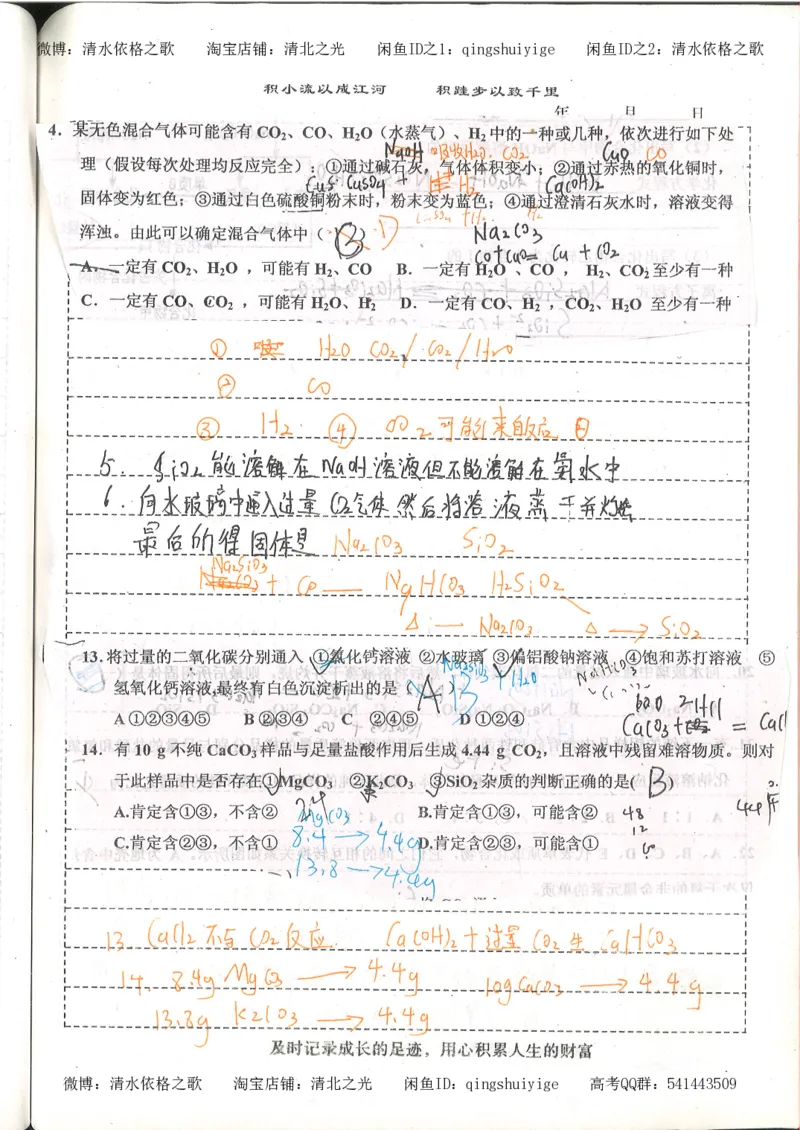 微博：清水依格之歌 淘宝店铺：清北之光 闲鱼ID之1：qingshuiyige 闲鱼ID之2：清水依格之歌
积小流以成江河 积跬步以致千里
年 月 日
4. 某无色混合气体可能含有 CO₂、CO、H₂O（水蒸气）、H₂ 中的一种或几种，依次进行如下处
NaOH 吸收H₂O、CO₂ CuO CO
理（假设每次处理均反应完全）：①通过碱石灰，气体体积变小；②通过赤热的氧化铜时，
CuSO₄ + H₂ Ca(OH)₂
固体变为红色；③通过白色硫酸铜粉末时，粉末变为蓝色；④通过澄清石灰水时，溶液变得
浑浊。由此可以确定混合气体中（ B ） D Na₂CO₃
CO+CuO = Cu + CO₂
A．一定有 CO₂、H₂O ，可能有 H₂、CO B．一定有 H₂O 、CO ， H₂、CO₂ 至少有一种
C．一定有 CO、CO₂ ，可能有 H₂O、H₂ D．一定有 CO、H₂ ，CO₂、H₂O 至少有一种
① H₂O CO₂ / CO₂ / H₂O
② CO
③ H₂ ④ CO₂ 可能 来自反应 ②
5. SiO₂ 能溶解在 NaOH 溶液但不能溶解在氨水中
6. 向水玻璃中通入过量 CO₂气体 然后将溶液蒸干并灼烧
最后所得固体是 Na₂CO₃ SiO₂
Na₂SiO₃
+ CO — NaHCO₃ H₂SiO₂
△ — Na₂CO₃ △ → SiO₂
13. 将过量的二氧化碳分别通入 ①氯化钙溶液 ②水玻璃 ③偏铝酸钠溶液 ④饱和苏打溶液 ⑤
Na₂SiO₃ + H₂O NaHCO₃
氢氧化钙溶液,最终有白色沉淀析出的是（ A ） B
A ①②③④⑤ B ②③④ C ②④⑤ D ①②④
CaCO₃ + 2HCl = CaCl
14. 有 10 g 不纯 CaCO₃ 样品与足量盐酸作用后生成 4.44 g CO₂，且溶液中残留难溶物质。则对
于此样品中是否存在①MgCO₃ ②K₂CO₃ ③SiO₂ 杂质的判断正确的是( B )
A.肯定含①③，不含② B.肯定含①③，可能含②
MgCO₃ 48
8.4 → 4.4g 12
C.肯定含②③，不含① D.肯定含②③，可能含①
13.8 → 4.4g
13. CaCl₂ 不与 CO₂ 反应 Ca(OH)₂ + 过量 CO₂ 生 CaHCO₃
14. 8.4g MgCO₃ → 4.4g 10g CaCO₃ → 4.4g
13.8g K₂CO₃ → 4.4g
及时记录成长的足迹，用心积累人生的财富
微博：清水依格之歌 淘宝店铺：清北之光 闲鱼ID：qingshuiyige 高考QQ群：541443509